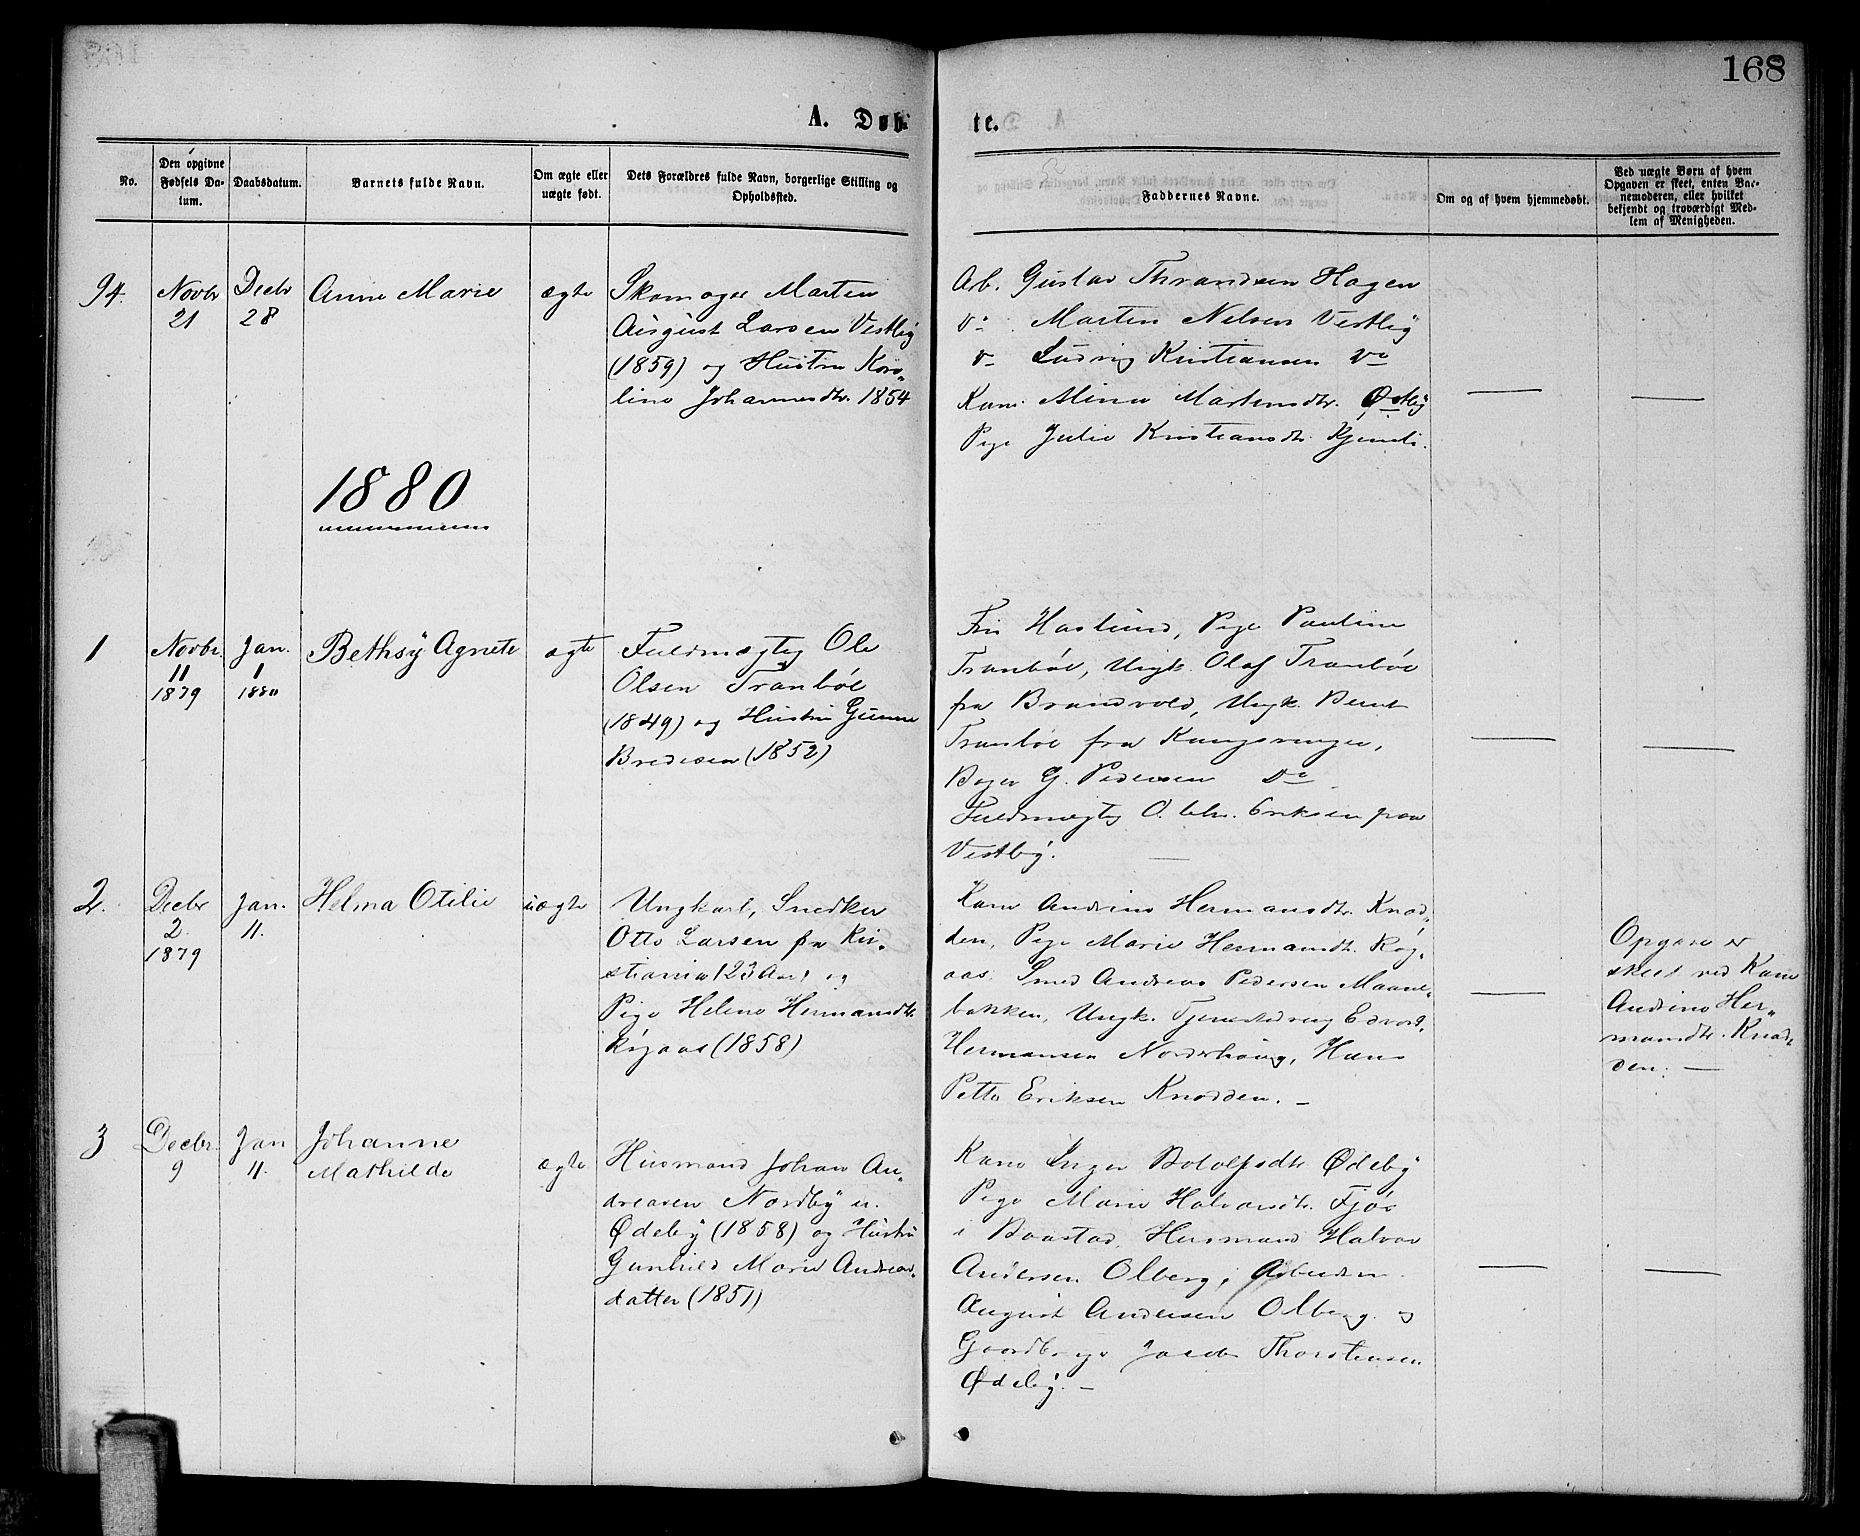 168
A. Døb-
te.
No.
Den opgivne Fødsels Da-tum.
Daabsdatum.
Barnets fulde Navn.
Om ægte eller uægte født.
Dets Forældres fulde Navn, borgerlige Stilling og Opholdssted.
Faddernes Navne.
Om og af hvem hjemmedøbt.
Ved uægte Børn af hvem Opgaven er skeet, enten Bar-nemoderen, eller hvilket bekjendt og troværdigt Med-lem af Menigheden.
94. Novbr 21 Decbr 28 Anne Marie ægte
Skomager Martin
August Larsen Vestby
(1859) og Hustru Karo-
line Johannesdtr. 1854
Arb. Gustav Thrandsen Hagen
do Martin Nilsen Vestby
do Ludvig Kristiansen do
Kone Mina Martinsdtr. Østby
Pige Julie Kristiansdtr.
1880
1 Novbr. 11 1879 Jan. 1 1880 Bethsy Agnete ægte
Fuldmægtig Ole
Olsen Tranbøl
(1849) og Hustru Gunne
Bredesen (1852)
Fru Haslund, Pige Pauline
Tranbøl, Ungk. Olaf Tranbøl
fra Brandvold, Ungk. Bernt
Tranbøl fra Kongsvinger,
Bager G. Pedersen do
Fuldmægtig O. Chr. Eriksen paa
Vestby.
2. Decbr 2 1879 Jan. 11. Helma Otilie uægte
Ungkarl, Snedker
Otto Larsen fra Kri-
stiania (23 Aar) og
Pige Helene Hermansdtr.
(1858)
Kone Andrine Hermansdtr. Knod-
den, Pige Marie Hermansdtr.
Smed Andreas Pedersen Maane-
bakken, Ungk. Tjenestedreng Edvart
Hermansen Norderhaug, Hans
Petter Eriksen Knodden. -
Opgave er
skeet ved Kone
Andrine Her-
mansdtr. Knod-
den. -
3 Decbr. 9 Jan 11. Johanne
Mathilde ægte
Husmand Johan An-
dreasen Nordby u.
Ødeby (1858) og Hustru
Gunhild Marie Andreas-
datter (1851)
Kone Inger Botolfsdtr Ødeby
Pige Marie Halvorsdtr. Fjøs
i Baastad, Husmand Halvor
Andersen Olberg, Arbeider
August Andersen Olberg og
Gaardbruger Jacob Thorstensen
Ødeby. -